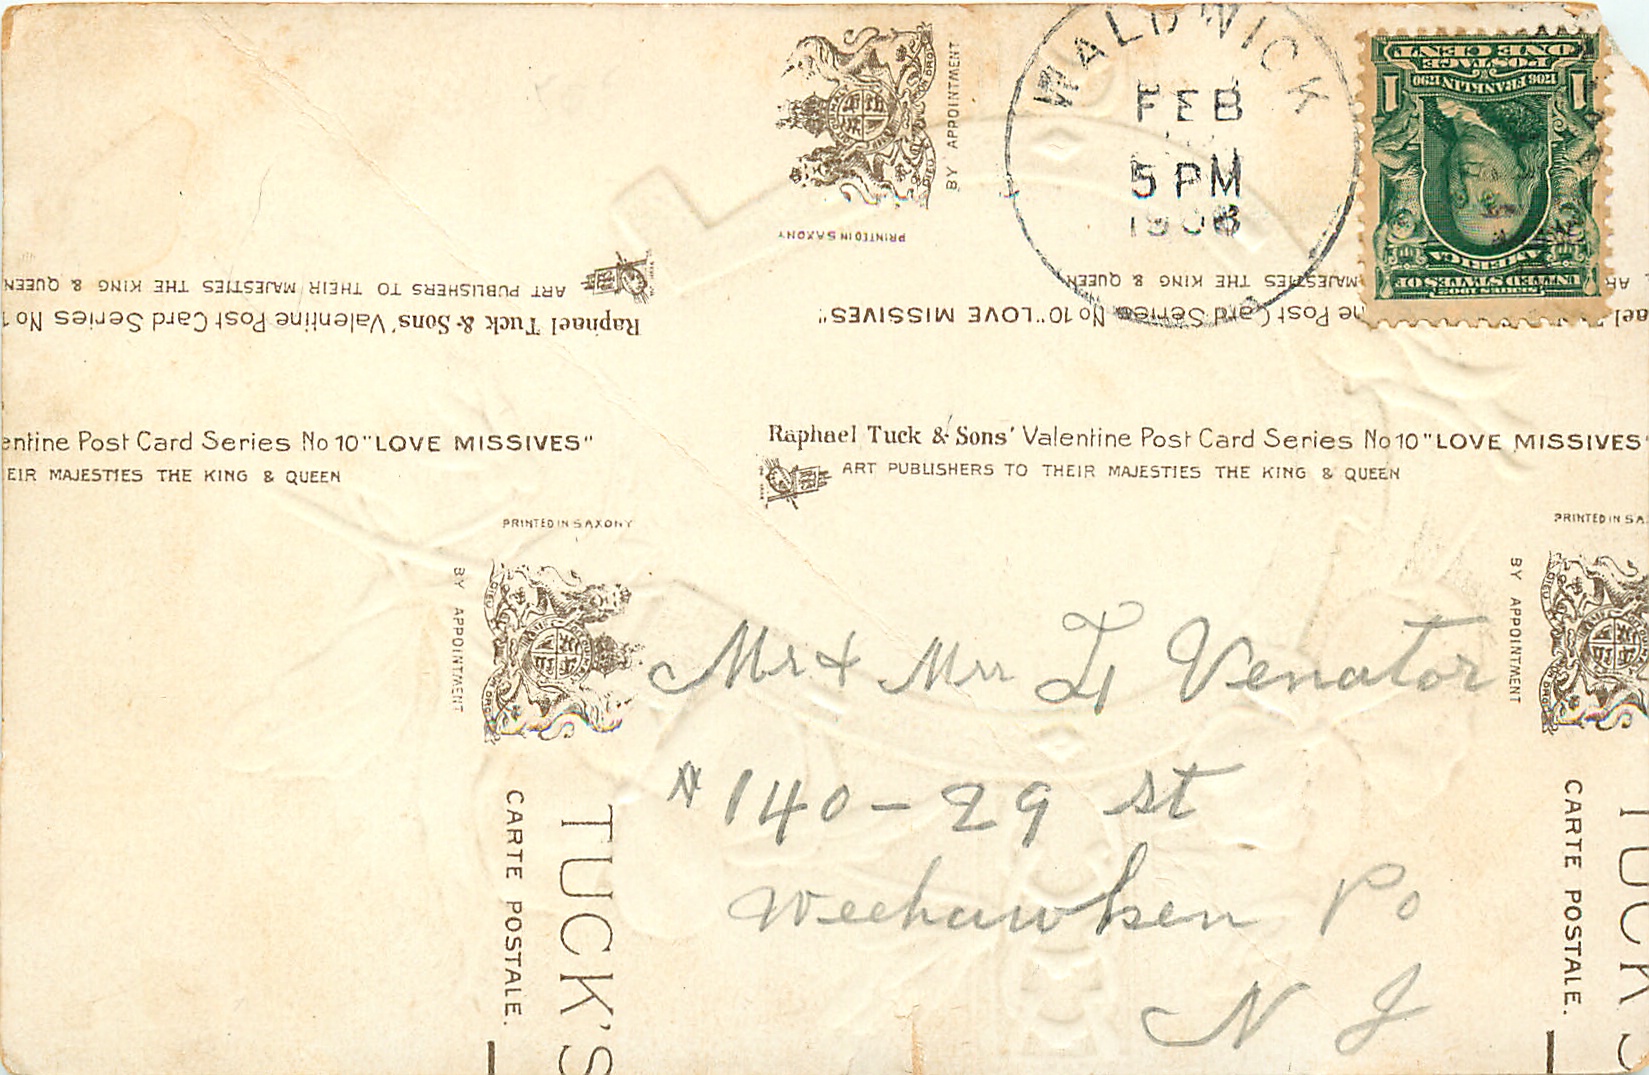 WALDWICK
FEB
5 PM
1908
ONE CENT
POSTAGE
1 1
1706 FRANKLIN 1790
UNITED STATES OF
AMERICA
BY APPOINTMENT
PRINTED IN SAXONY
ART PUBLISHERS TO THEIR MAJESTIES THE KING & QUEEN
Raphael Tuck & Sons' Valentine Post Card Series No 1
MAJESTIES THE KING & QUEEN
Post Card Series No 10 "LOVE MISSIVES"
entine Post Card Series No 10 "LOVE MISSIVES"
EIR MAJESTIES THE KING & QUEEN
Raphael Tuck & Sons' Valentine Post Card Series No 10 "LOVE MISSIVES"
ART PUBLISHERS TO THEIR MAJESTIES THE KING & QUEEN
PRINTED IN SAXONY
PRINTED IN SA
BY APPOINTMENT
BY APPOINTMENT
TUCK'S
CARTE POSTALE.
TUCK'S
CARTE POSTALE.
Mr & Mrs Venator
# 140-29 st
Weehawken Po
N J